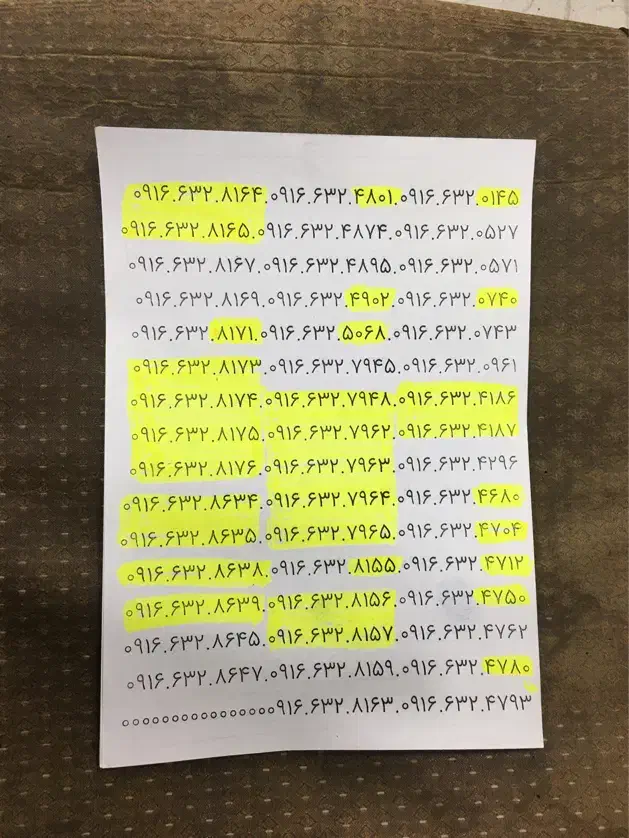 ۰۹۱۶.۶۳۲.۸۱۶۴.۰۹۱۶.۶۳۲.۴۸۰۱.۰۹۱۶.۶۳۲.۰۱۴۵
۰۹۱۶.۶۳۲.۸۱۶۵.۰۹۱۶.۶۳۲.۴۸۷۴.۰۹۱۶.۶۳۲.۰۵۲۷
۰۹۱۶.۶۳۲.۸۱۶۷.۰۹۱۶.۶۳۲.۴۸۹۵.۰۹۱۶.۶۳۲.۰۵۷۱
۰۹۱۶.۶۳۲.۸۱۶۹.۰۹۱۶.۶۳۲.۴۹۰۲.۰۹۱۶.۶۳۲.۰۷۴۰
۰۹۱۶.۶۳۲.۸۱۷۱.۰۹۱۶.۶۳۲.۵۰۶۸.۰۹۱۶.۶۳۲.۰۷۴۳
۰۹۱۶.۶۳۲.۸۱۷۳.۰۹۱۶.۶۳۲.۷۹۴۵.۰۹۱۶.۶۳۲.۰۹۶۱
۰۹۱۶.۶۳۲.۸۱۷۴.۰۹۱۶.۶۳۲.۷۹۴۸.۰۹۱۶.۶۳۲.۴۱۸۶
۰۹۱۶.۶۳۲.۸۱۷۵.۰۹۱۶.۶۳۲.۷۹۶۲.۰۹۱۶.۶۳۲.۴۱۸۷
۰۹۱۶.۶۳۲.۸۱۷۶.۰۹۱۶.۶۳۲.۷۹۶۳.۰۹۱۶.۶۳۲.۴۲۹۶
۰۹۱۶.۶۳۲.۸۶۳۴.۰۹۱۶.۶۳۲.۷۹۶۴.۰۹۱۶.۶۳۲.۴۶۸۰
۰۹۱۶.۶۳۲.۸۶۳۵.۰۹۱۶.۶۳۲.۷۹۶۵.۰۹۱۶.۶۳۲.۴۷۰۴
۰۹۱۶.۶۳۲.۸۶۳۸.۰۹۱۶.۶۳۲.۸۱۵۵.۰۹۱۶.۶۳۲.۴۷۱۲
۰۹۱۶.۶۳۲.۸۶۳۹.۰۹۱۶.۶۳۲.۸۱۵۶.۰۹۱۶.۶۳۲.۴۷۵۰
۰۹۱۶.۶۳۲.۸۶۴۵.۰۹۱۶.۶۳۲.۸۱۵۷.۰۹۱۶.۶۳۲.۴۷۶۲
۰۹۱۶.۶۳۲.۸۶۴۷.۰۹۱۶.۶۳۲.۸۱۵۹.۰۹۱۶.۶۳۲.۴۷۸۰
۰۰۰۰۰۰۰۰۰۰۰۰۰۰۰۰۹۱۶.۶۳۲.۸۱۶۳.۰۹۱۶.۶۳۲.۴۷۹۳